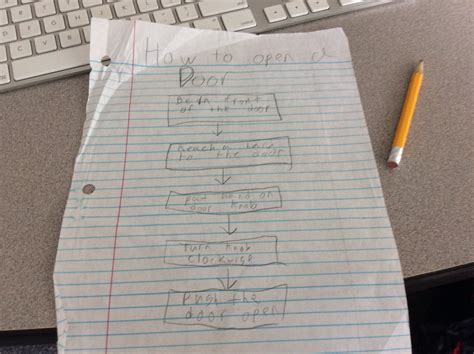 How to open a
Door
Be in front
of the door
Reach a hand
to the door
put hand on
door knob
Turn knob
clockwise
Push the
door open